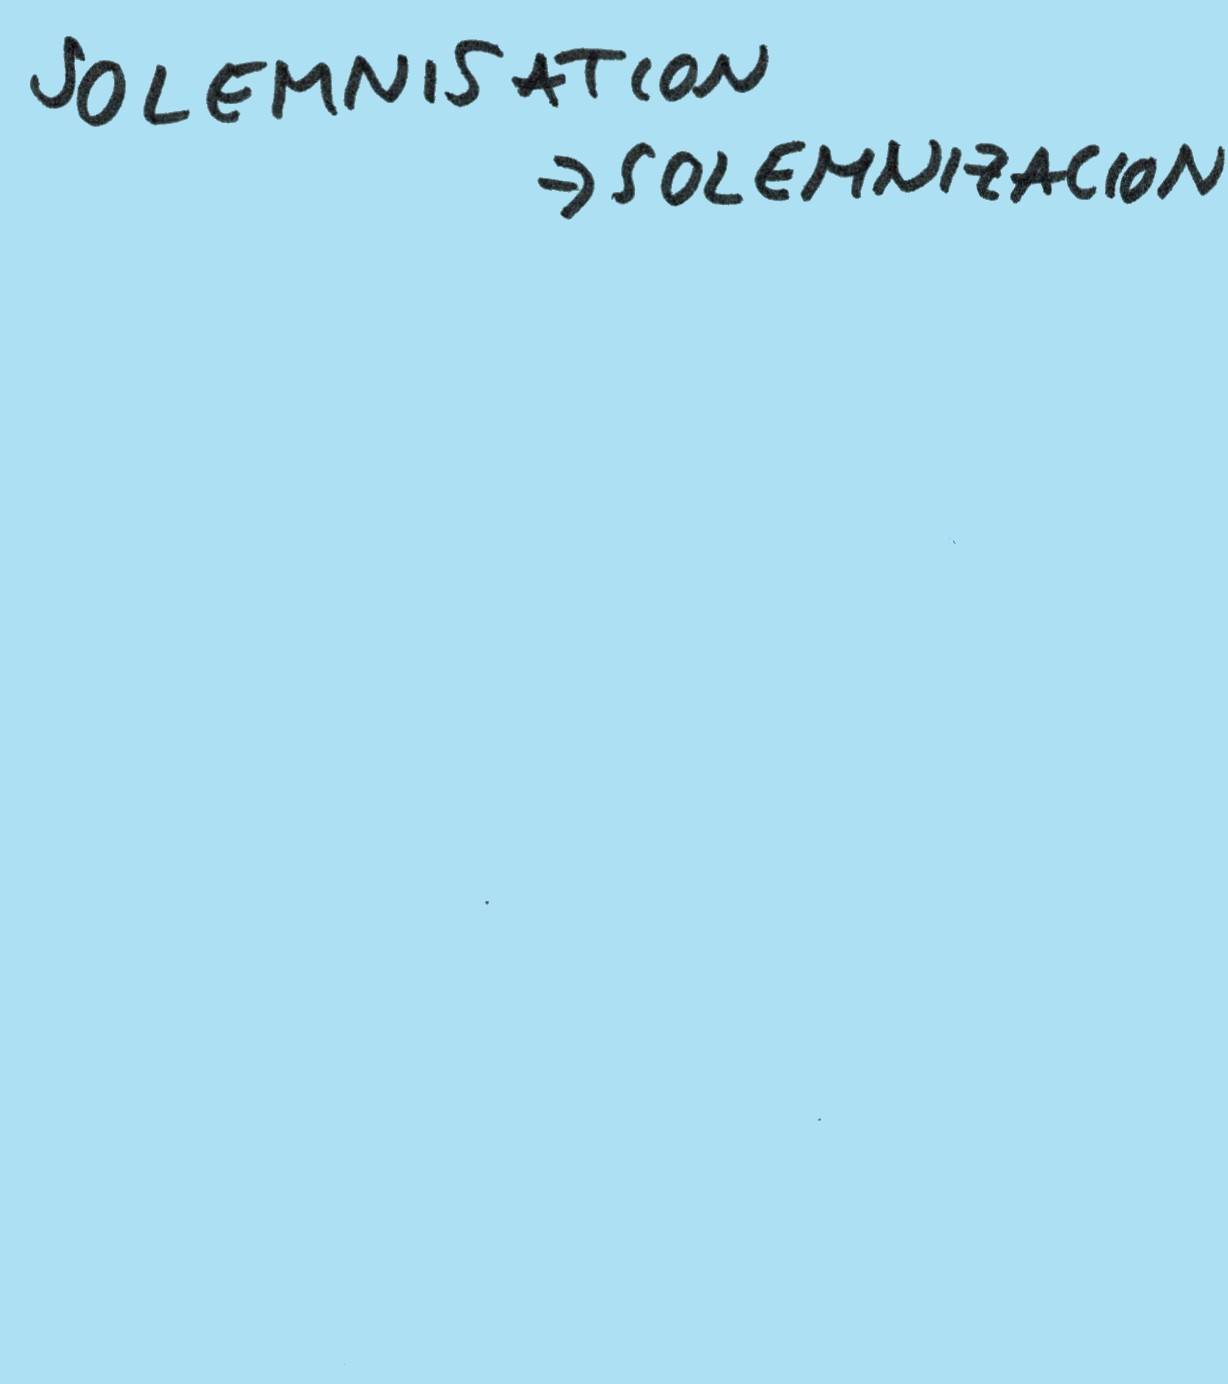 SOLEMNISATION
→ SOLEMNIZACION